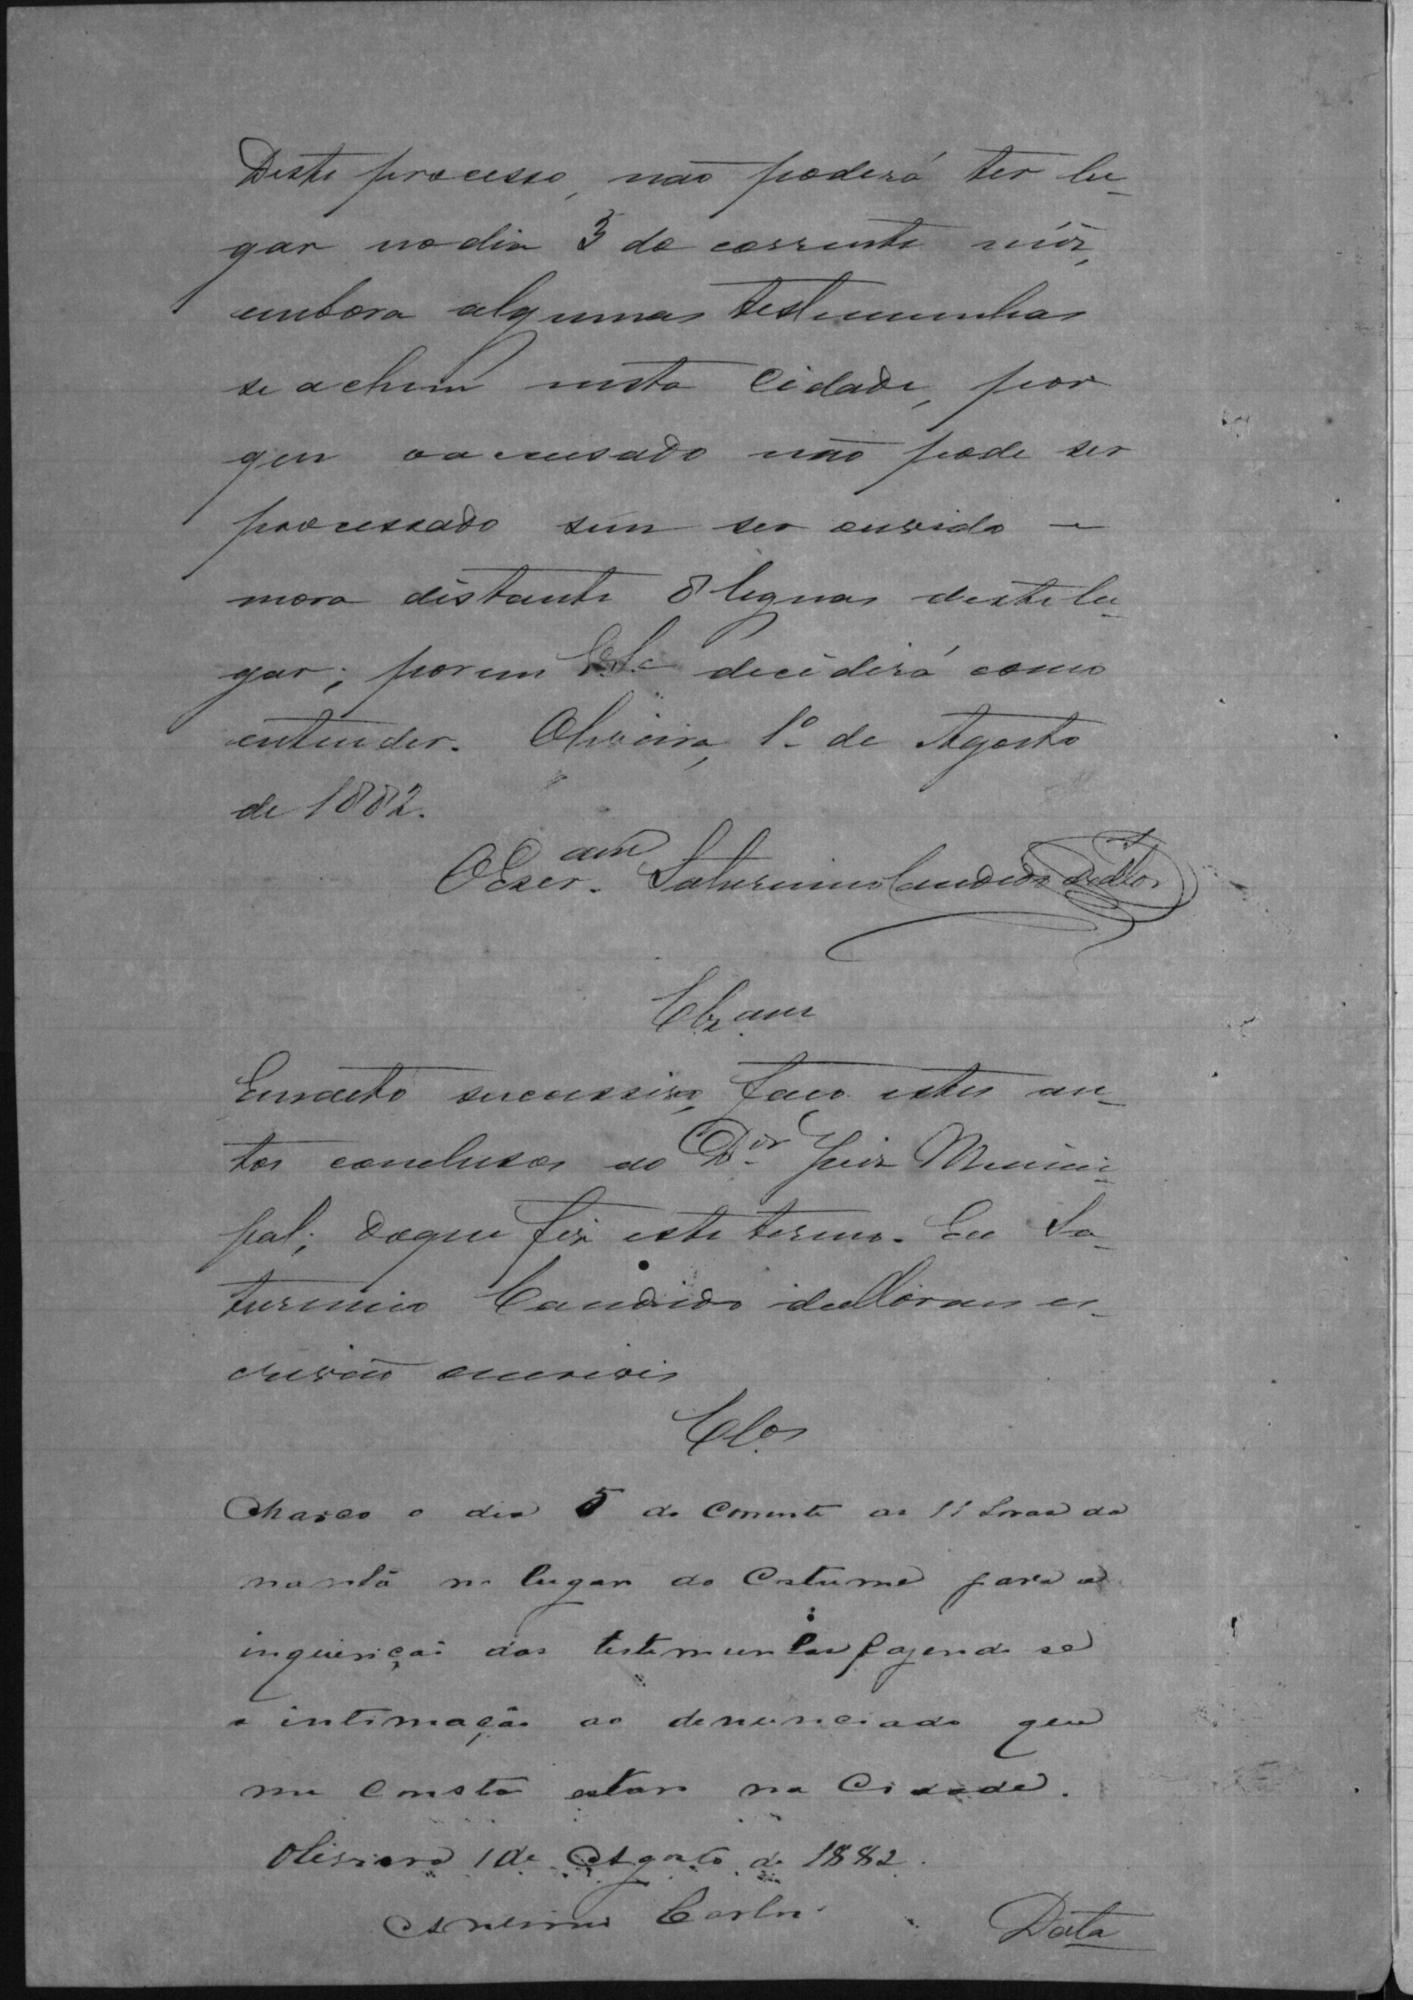 Deste processo, não poderá ter lu-
gar no dia 3 do corrente mêz,
embora algumas testemunhas
se achem nesta Cidade, por
que o accusado não pode ser
processado sem ser ouvido e
mora distante 8 leguas deste lu-
gar; porem V.S.ª decidirá como
entender. Oliveira, 1º de Agosto
de 1882.
O Escr.am Saturnino Candido
Clz.am
Em acto successivo, faço estes au-
tos conclusos ao D.or Juiz Munici-
pal; do que fiz este termo. Eu Sa-
turnino Candido de Moraes es-
crivão escrevi
Cl.os
Marco o dia 5 do corrente as 11 horas da
manhã no lugar do Costume para a
inquirição das testemunhas fazendo se
a intimação ao denunciado que
me consta estar na Cidade.
Oliveira 1 de Agosto de 1882.
Data